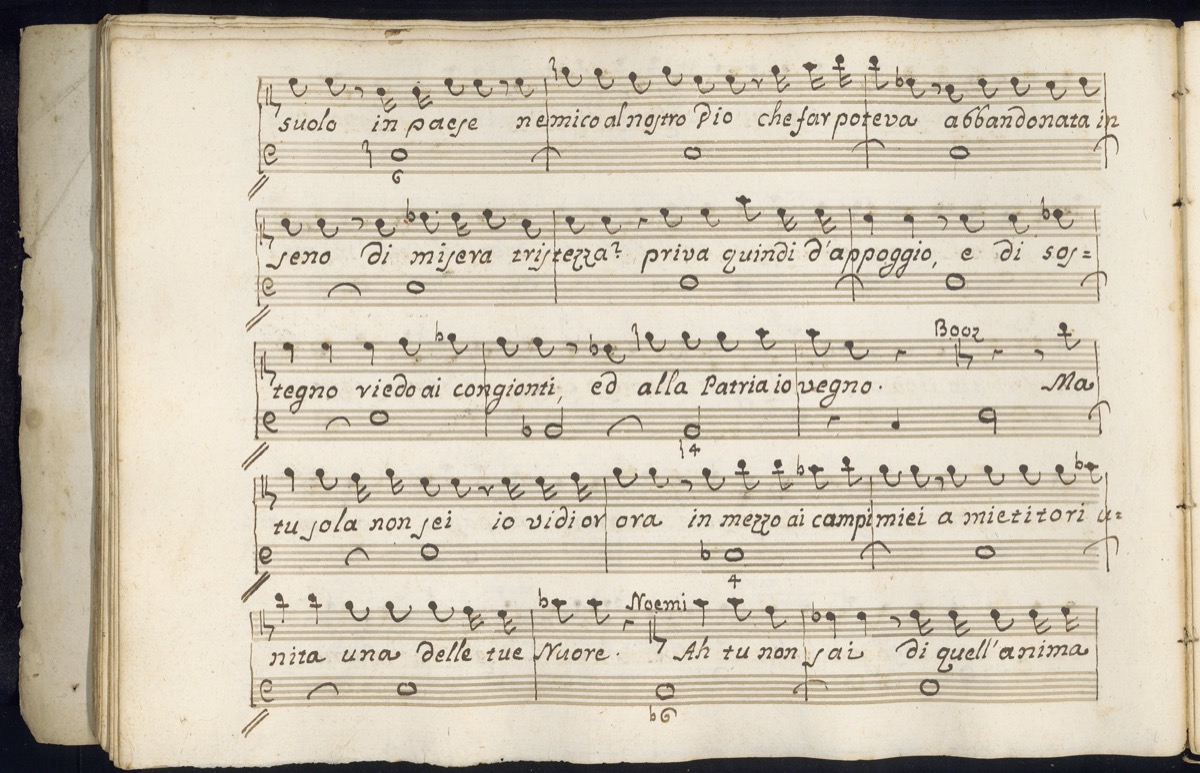 suolo in paese nemico al nostro Dio che far poteva abbandonata in
6
seno di misera tristezza? priva quindi d'appoggio, e di sos=
Booz
tegno viedo ai congionti, ed alla Patria io vegno. Ma
4
tu sola non sei io vidi or ora in mezzo ai campi miei a mietitori u=
4
Noemi
nita una delle tue Nuore. Ah tu non sai di quell'anima
b6